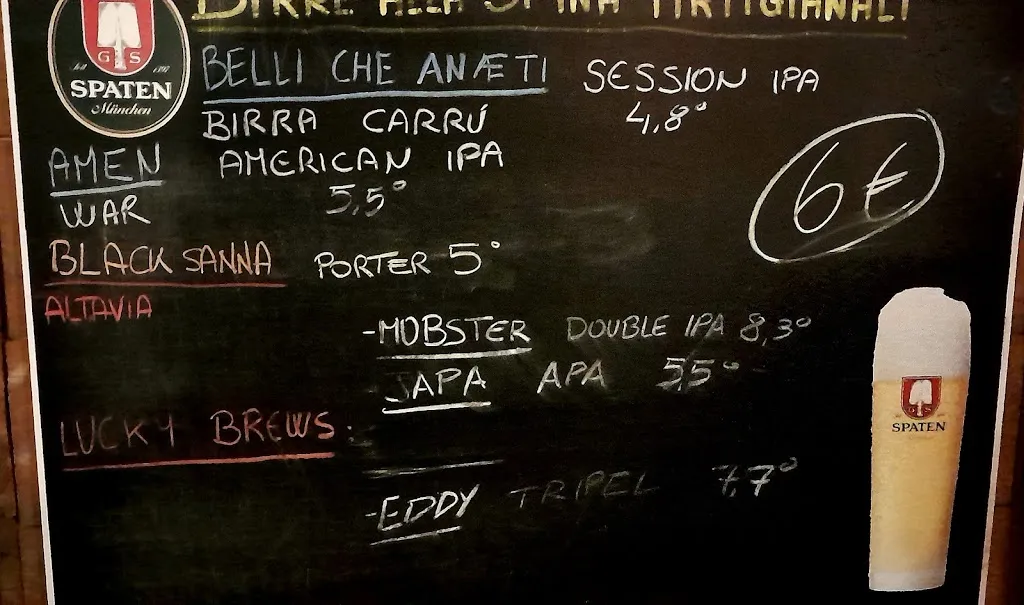 BIRRE ALLA SPINA ARTIGIANALI
G S
SPATEN
München
BELLI CHE ANÆTI SESSION IPA
BIRRA CARRÚ 4,8°
AMEN AMERICAN IPA
WAR 5,5°
6€
BLACK SANNA PORTER 5°
ALTAVIA
-MOBSTER DOUBLE IPA 8,3°
JAPA APA 5,5°
LUCKY BREWS:
-EDDY TRIPEL 7,7°
G S
SPATEN